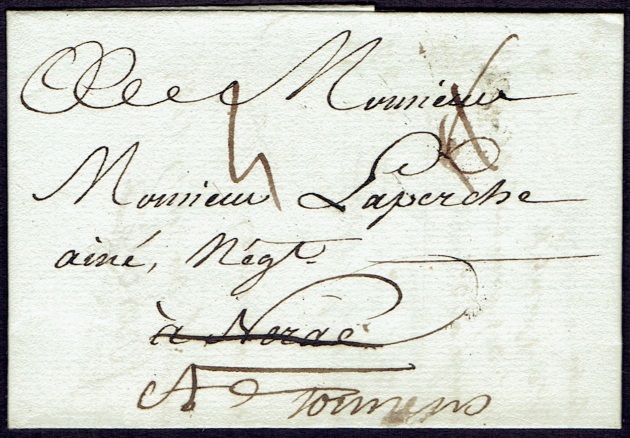 Monsieur
Monsieur Laperche
ainé, Négt.
à Nerac
A Tonneins